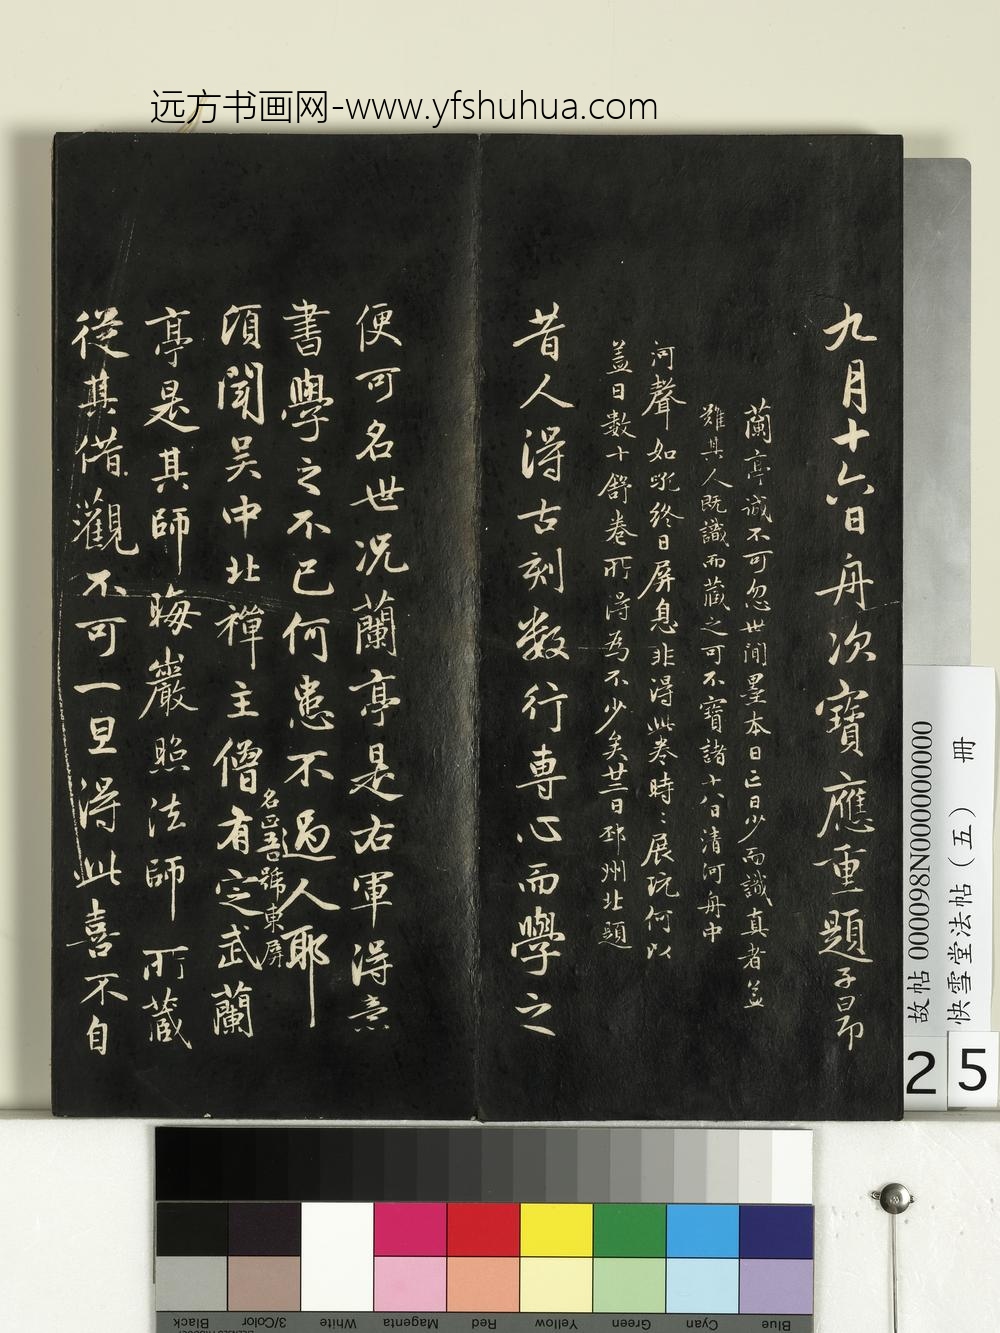 远方书画网-www.yfshuhua.com
九月十六日舟次寶應重題子昂
蘭亭誠不可忽世間墨本日亡日少而識真者盖
難其人既識而藏之可不寶諸十八日清河舟中
河聲如吼終日屏息非得此卷時〻展玩何以
盖日數十舒卷所得為不少矣廿二日邳州北題
昔人得古刻数行専心而學之
便可名世况蘭亭是右軍得意
書學之不已何患不過人耶
頃聞吴中北禪主僧有定武蘭
名正吾號東屏
亭是其師晦巖照法師所藏
從其借觀不可一旦得此喜不自
故帖 000098N000000000
快雪堂法帖（五） 冊
25
Black
3/Color
White
Magenta
Red
Yellow
Green
Cyan
Blue